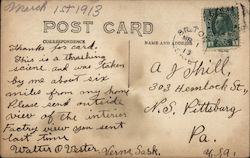 March 1st 1913
POST CARD
CORRESPONDENCE
NAME AND ADDRESS
Thanks for card.
This is a thrashing
scene and was taken
by me about six
miles from my home
Please send outside
view of the interior
Factory view you sent
last time
Walter O Vester Verna Sask.
A J Thill,
303 Hemlock St,
N.S. Pittsburg
Pa.
U.S.A.